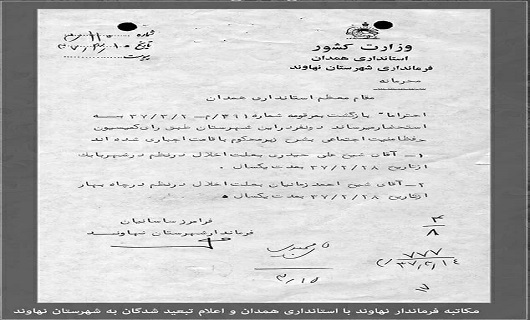 وزارت کشور
استانداری همدان
فرمانداری شهرستان نهاوند
محرمانه
شماره
تاریخ
پیوست
مقام معظم استانداری همدان
احتراما" بازگشت بمرقومه شماره ۲/۲/۳۷ به
استحضار میرساند دو نفر در این شهرستان طبق رای کمیسیون
حفظ امنیت اجتماعی بشرح زیر محکوم باقامت اجباری شده اند
۱- آقای شیخ علی حیدری بعلت اخلال در نظم در شهر بابک
از تاریخ ۳۷/۲/۲۸ بمدت یکسال .
۲- آقای شیخ احمد زمانیان بعلت اخلال در نظم در چاه بهار
از تاریخ ۳۷/۲/۲۸ بمدت یکسال .
فرامرز ساسانیان
فرماندار شهرستان نهاوند
۴
۸
۷۷۷
مکاتبه فرماندار نهاوند با استانداری همدان و اعلام تبعید شدگان به شهرستان نهاوند